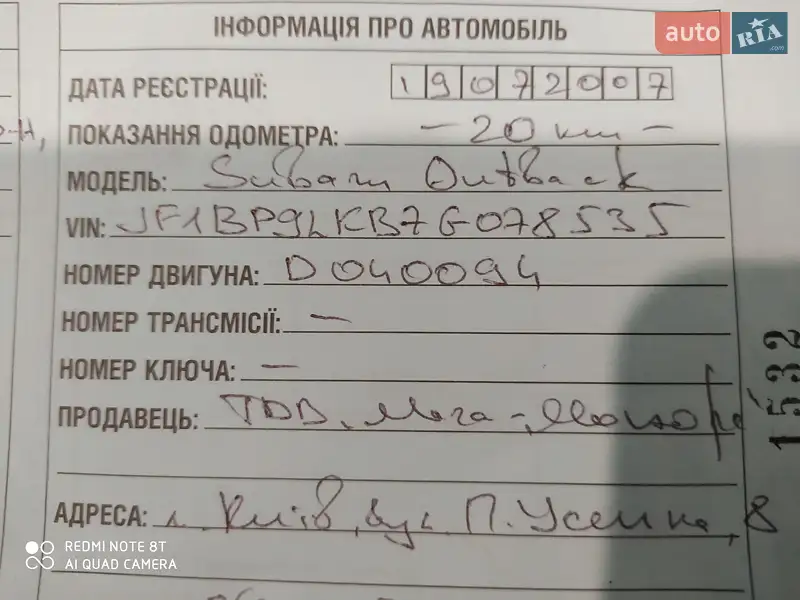 auto RIA .com
ІНФОРМАЦІЯ ПРО АВТОМОБІЛЬ
ДАТА РЕЄСТРАЦІЇ: 19072007
ПОКАЗАННЯ ОДОМЕТРА: - 20 km -
МОДЕЛЬ: Subaru Outback
VIN: JF1BP9LKB7G078535
НОМЕР ДВИГУНА: D040094
НОМЕР ТРАНСМІСІЇ: —
НОМЕР КЛЮЧА: —
ПРОДАВЕЦЬ: ТДВ "Мега-Моторс
АДРЕСА: м. Київ, вул. П. Усенка, 8
1532
REDMI NOTE 8T
AI QUAD CAMERA